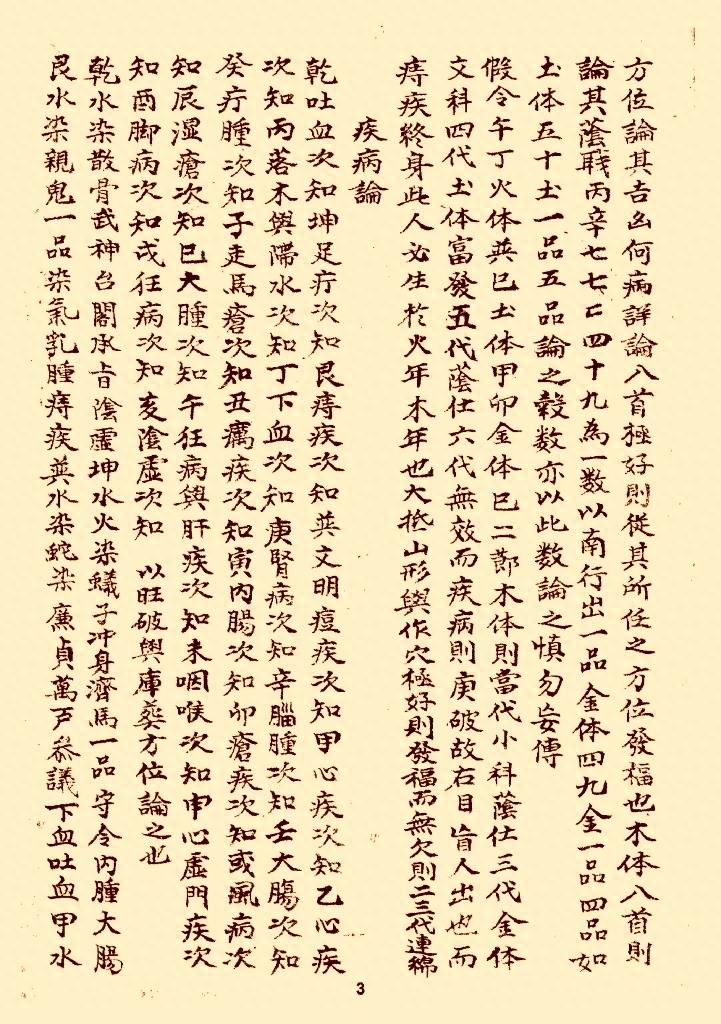 方位論其吉凶何病詳論八首極好則從其所任之方位發福也木体八首則
論其蔭職丙辛七七亡四十九為一数以南行出一品金体四九金一品四品如
土体五十土一品五品論之穀数亦以此数論之慎勿妄傳
假令午丁火体英巳土体甲卯金体巳二節木体則當代小科蔭仕三代金体
文科四代土体富發五代蔭仕六代無效而疾病則庚破故右目盲人出也而
痔疾終身此人必生於火年木年也大抵山形與作穴極好則發福而無欠則二三代連綿
疾病論
乾吐血次知坤足疔次知艮痔疾次知巽文明痘疾次知甲心疾次知乙心疾
次知丙落木與滯水次知丁下血次知庚腎病次知辛腦腫次知壬大腸次知
癸疔腫次知子走馬瘡次知丑癘疾次知寅內腸次知卯瘡疾次知或風病次
知辰湿瘡次知巳大腫次知午狂病與肝疾次知未咽喉次知申心虛門疾次
知酉脚病次知戌狂病次知亥陰虛次知 以旺破與庫葬方位論之也
乾水染散骨武神台閣承旨陰虛坤水火染蟻子冲身濟馬一品守令內腫大腸
艮水染親鬼一品染氣乳腫痔疾巽水染蛇染廉貞萬戶叅議下血吐血甲水
3